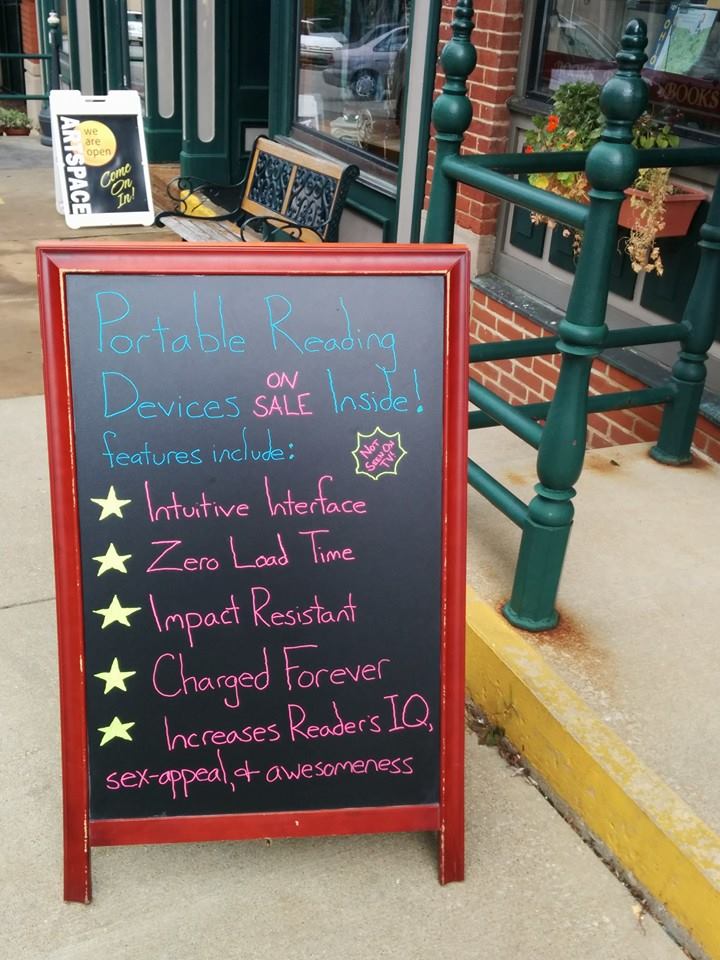 ARTSPACE
we
are
open
Come
On
In!
BOOKS
Portable Reading
Devices ON SALE Inside!
features include:
NOT
SEEN ON
TV!
Intuitive Interface
Zero Load Time
Impact Resistant
Charged Forever
Increases Reader's IQ,
sex-appeal, & awesomeness